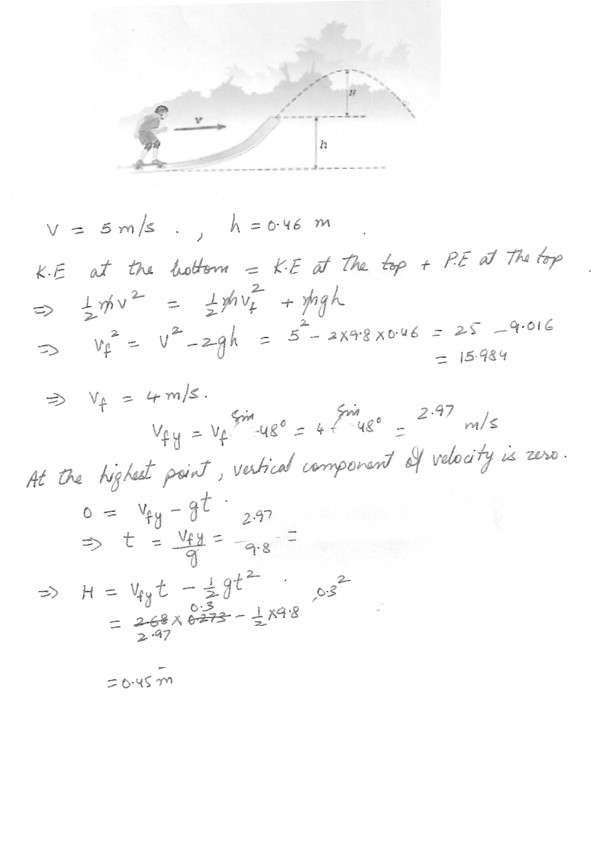 H
v
h
V = 5 m/s . , h = 0.46 m .
K.E at the bottom = K.E at The top + P.E at The top .
⇒ 1/2 mv² = 1/2 mv_f² + mgh
⇒ v_f² = v² - 2gh = 5² - 2×9.8×0.46 = 25 - 9.016
= 15.984
⇒ V_f = 4 m/s.
V_fy = V_f Sin 48° = 4 Sin 48° = 2.97 m/s
At the highest point, vertical component of velocity is zero.
0 = V_fy - gt .
⇒ t = V_fy/g = 2.97/9.8 =
⇒ H = V_fy t - 1/2 gt² .
= 2.68 2.97 × 0.273 0.3 - 1/2 × 9.8 , 0.3²
= 0.45 m